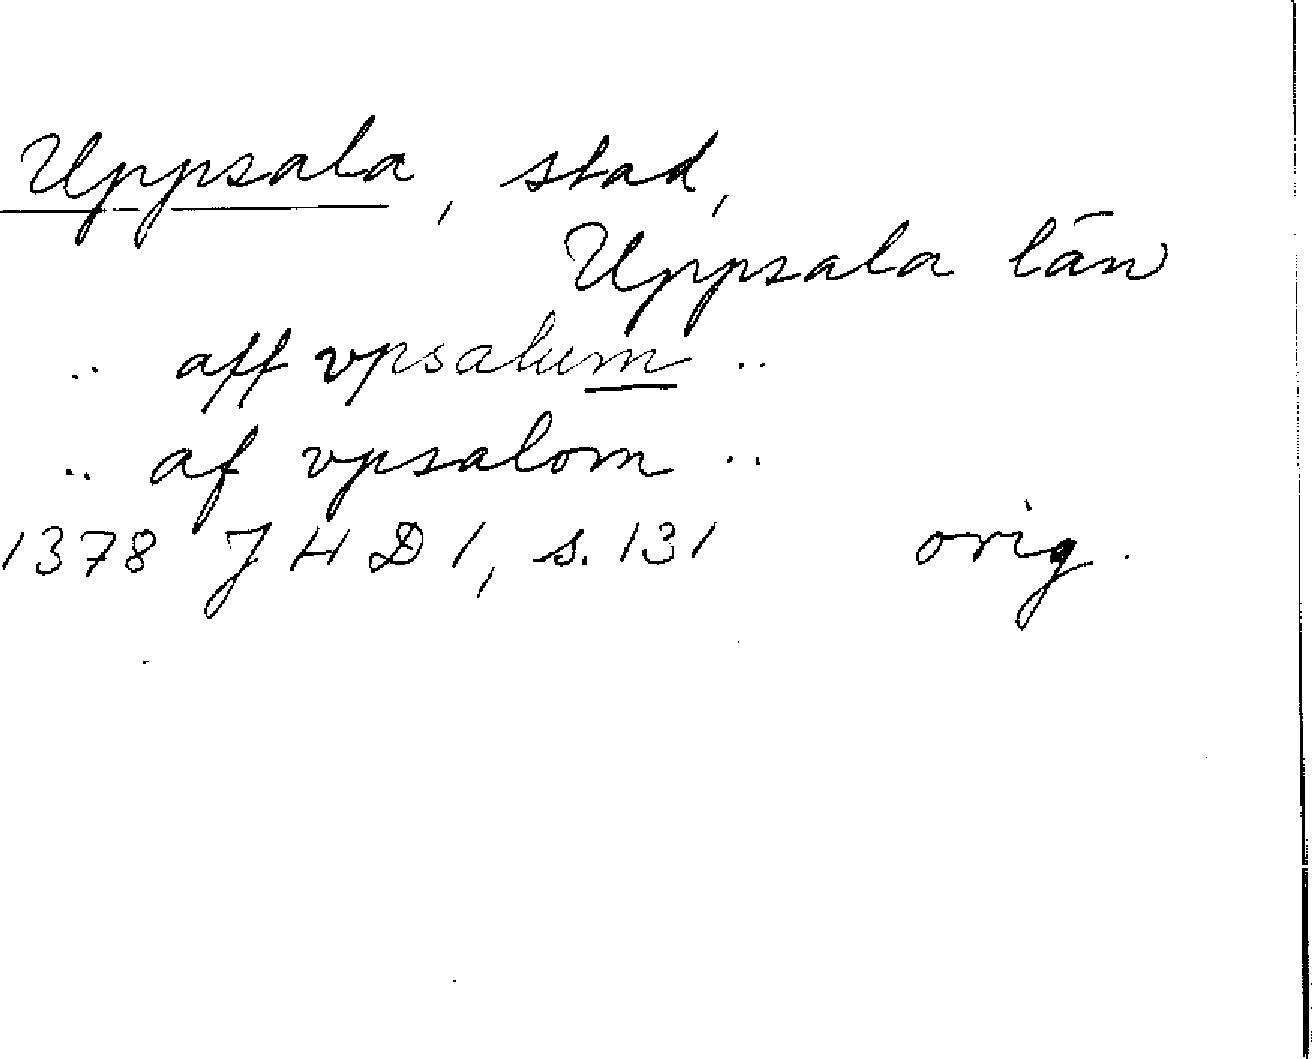 Uppsala, stad,
Uppsala län
.. aff vpsalum ..
.. af vpsalom ..
1378 JHD 1, s. 131 orig.